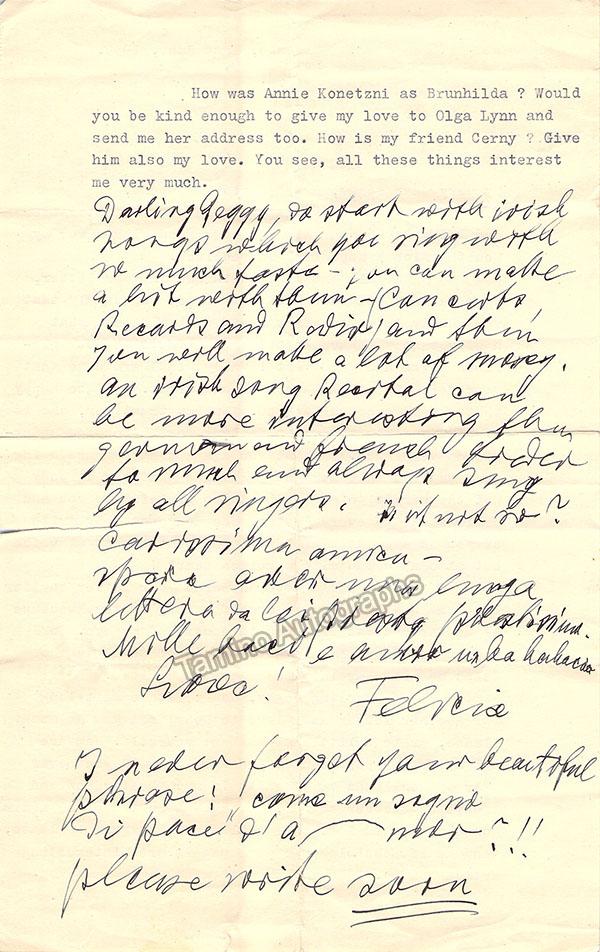 How was Annie Konetzni as Brunhilda ? Would
you be kind enough to give my love to Olga Lynn and
send me her address too. How is my friend Cerny ? Give
him also my love. You see, all these things interest
me very much.
Darling Peggy, do start with irish
songs which you sing with
so much taste - you can make
a lot with them - (Concerts,
Records and Radio) and then
you will make a lot of money.
an irish song Recital can
be more interesting then
german and french Lieder
to much and always sung
by all singers. is it not so?
Carissima amica -
spero aver una lunga
lettera da lei
Mille baci e
Felicie
I never forget your beautiful
phrase! come un sogno
di pace d'a mor?!!
please write soon
Tamino Autographs